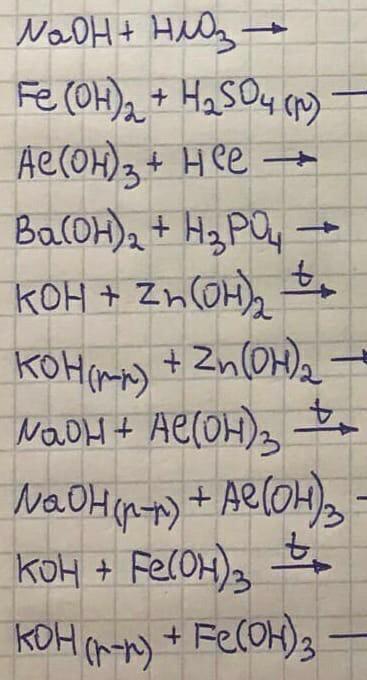 NaOH + HNO₃ →
Fe(OH)₂ + H₂SO₄(р) —
Al(OH)₃ + HCl →
Ba(OH)₂ + H₃PO₄ →
KOH + Zn(OH)₂ t→
KOH(р-р) + Zn(OH)₂ →
NaOH + Al(OH)₃ t→
NaOH(р-р) + Al(OH)₃ -
KOH + Fe(OH)₃ t→
KOH(р-р) + Fe(OH)₃ —